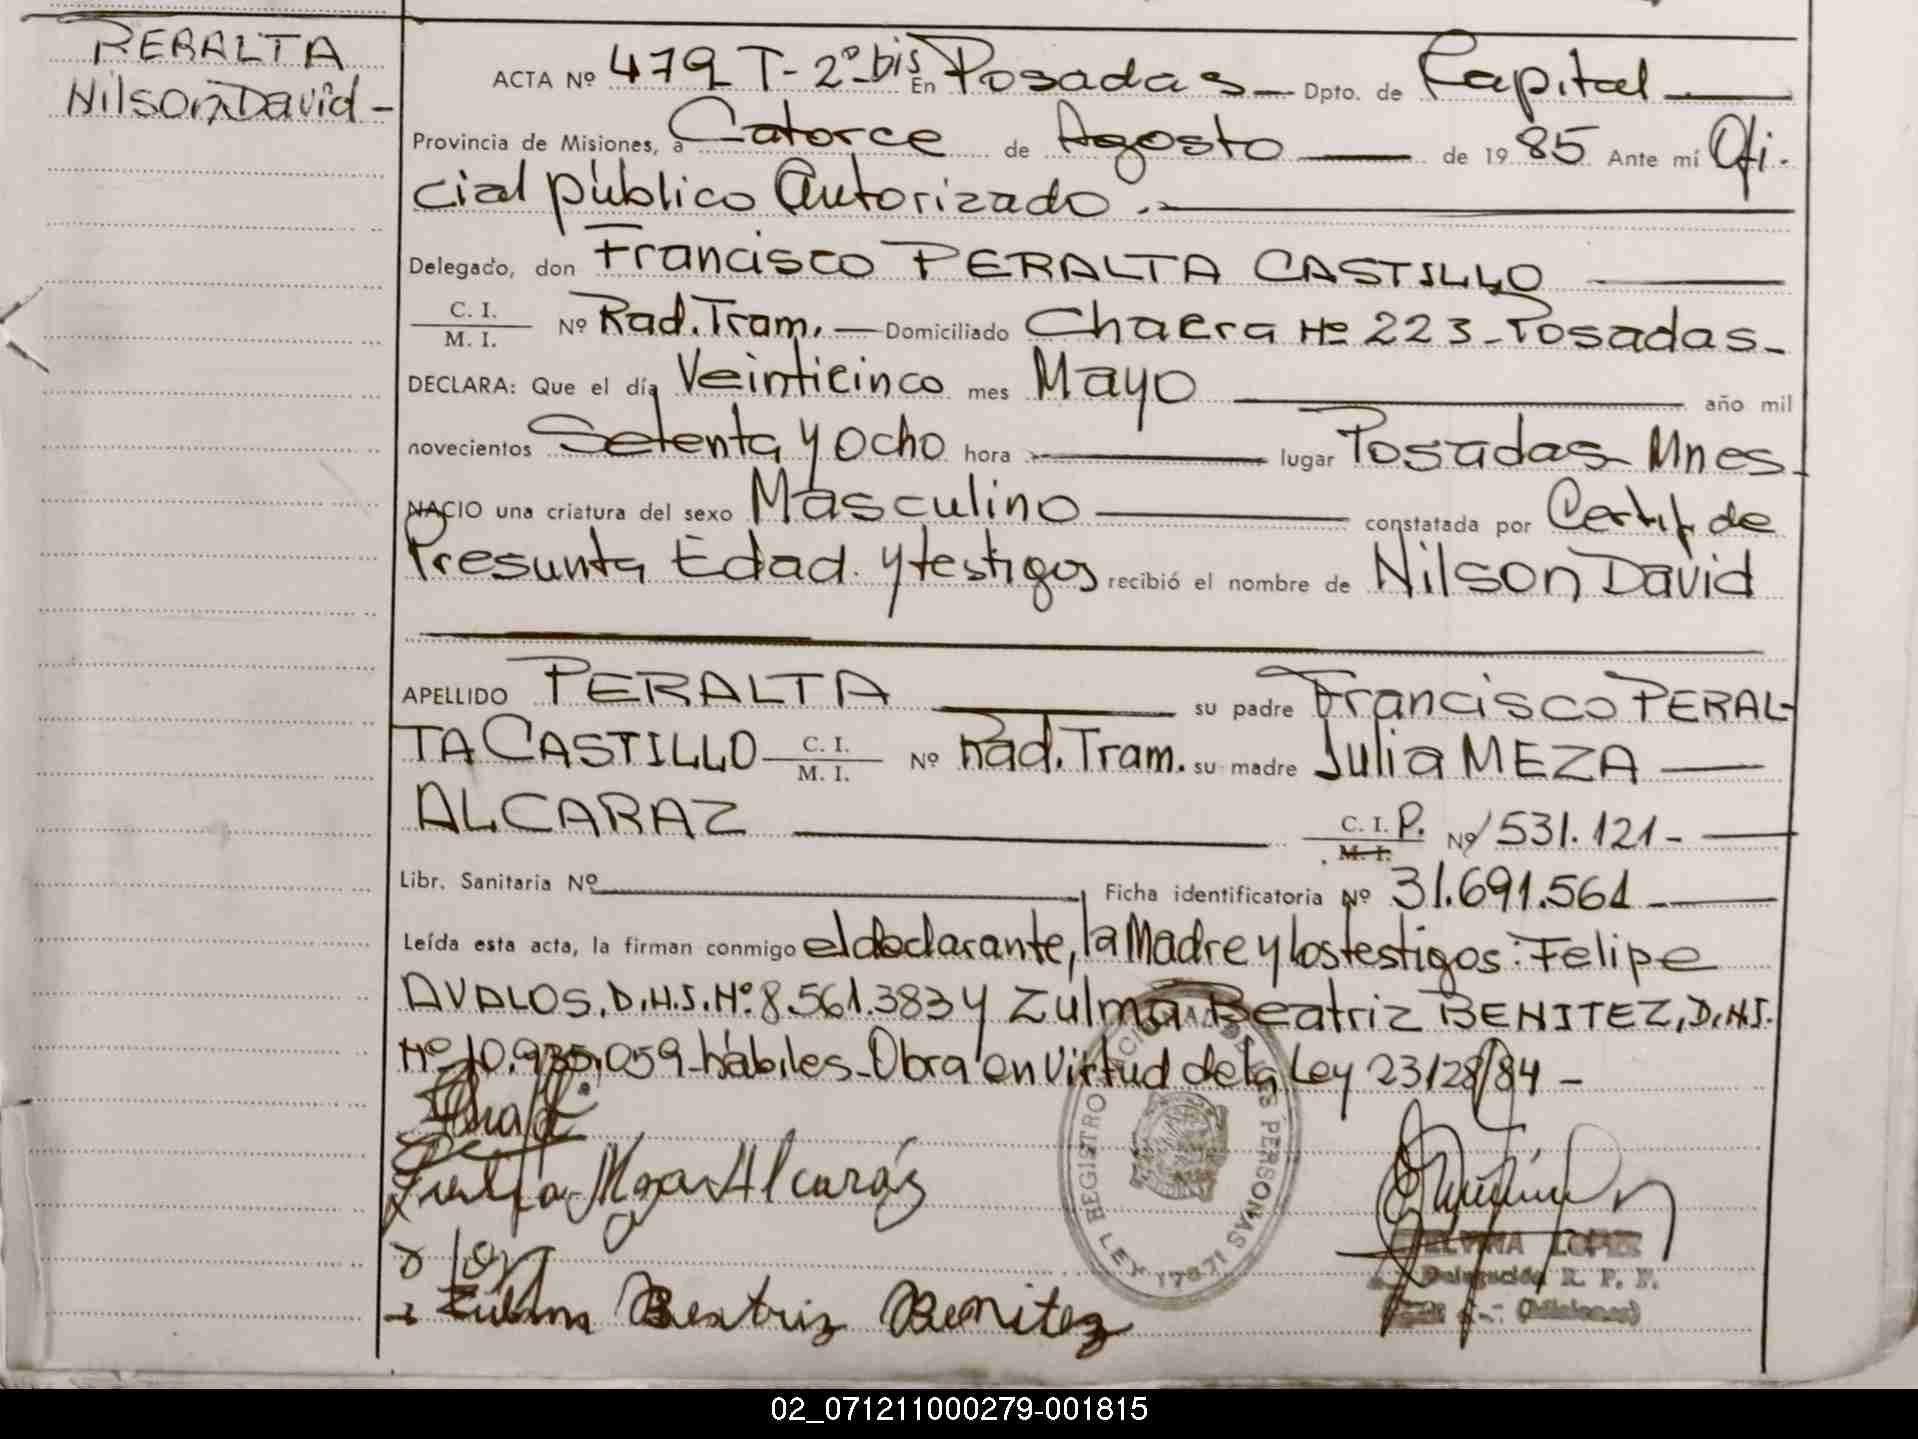 PERALTA
Nilson David -
ACTA Nº 479 T- 2º bis En Posadas - Dpto. de Capital
Provincia de Misiones, a Catorce de Agosto de 1985 Ante mí Ofi-
cial público Autorizado .-
Delegado, don Francisco PERALTA CASTILLO
C. I. / M. I. Nº Rad. Tram. - Domiciliado Chacra Nº 223 - Posadas -
DECLARA: Que el día Veinticinco mes Mayo año mil
novecientos Setenta y Ocho hora lugar Posadas Mnes -
NACIO una criatura del sexo Masculino constatada por Certif. de
Presunta Edad. y testigos recibió el nombre de Nilson David
APELLIDO PERALTA su padre Francisco PERAL-
TA CASTILLO C. I. / M. I. Nº Rad. Tram. su madre Julia MEZA
ALCARAZ C. I. P. / M. I. Nº 531.121 -
Libr. Sanitaria Nº Ficha identificatoria Nº 31.691.561 -
Leída esta acta, la firman conmigo el declarante, la Madre y los testigos: Felipe
AVALOS, D.N.I. Nº 8.561.383 y Zulma Beatriz BENITEZ, D.N.I.
Nº 10.935.059 - hábiles - Obra en virtud de la Ley 23128/84 -
Julia Meza Alcaráz
Zulma Beatriz Benitez
REGISTRO DE LAS PERSONAS
LEY 17671
ELVIRA LOPEZ
Delegación R. P. F.
(Misiones)
02_071211000279-001815